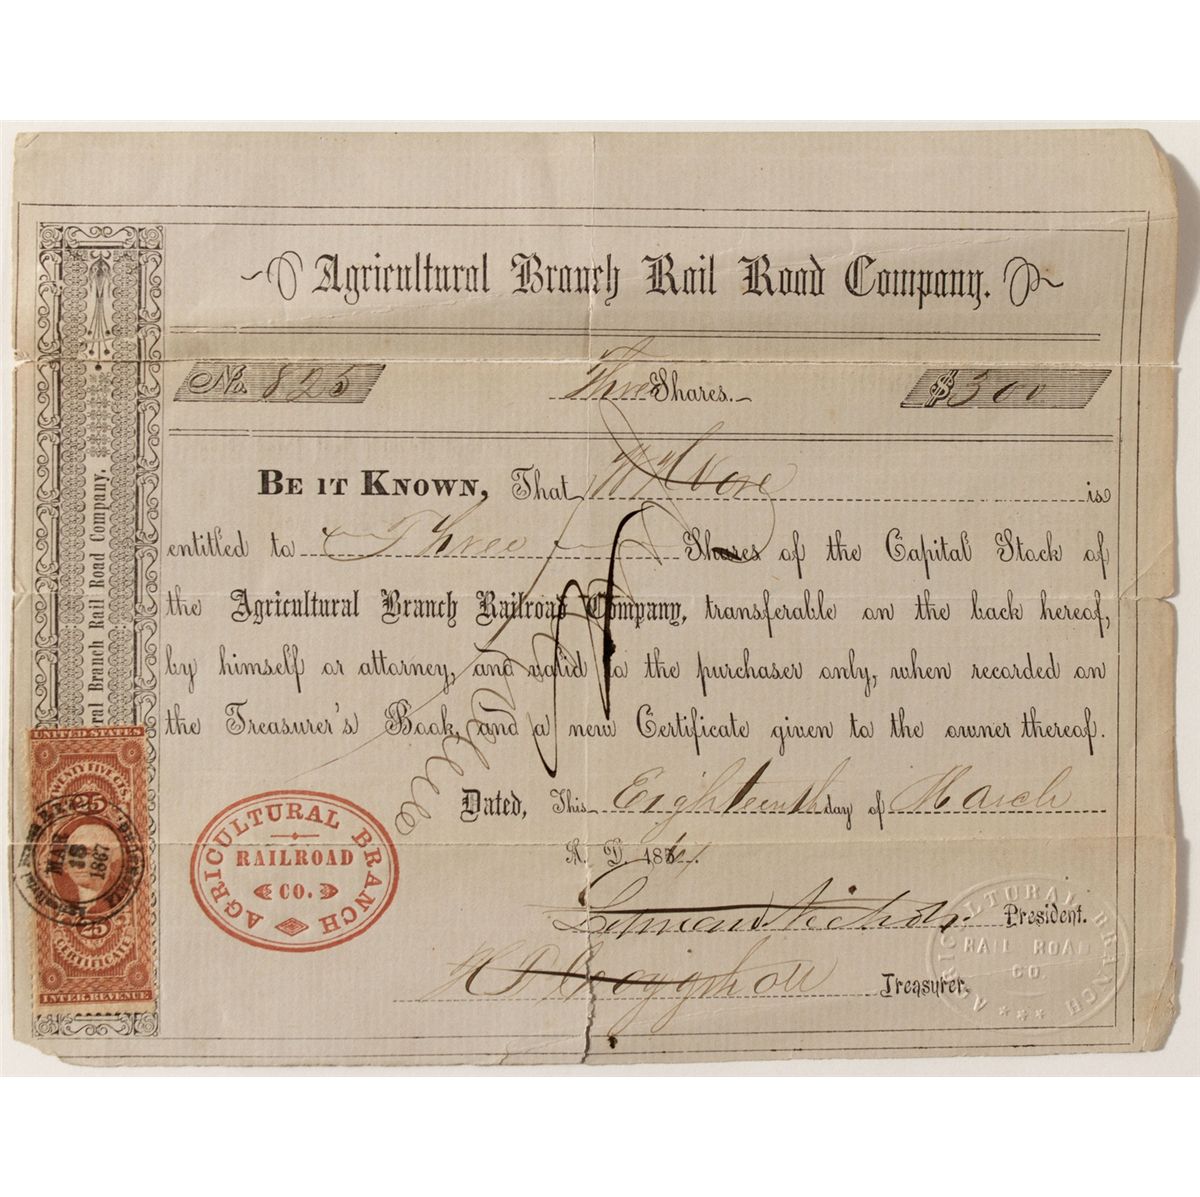 Agricultural Branch Rail Road Company.
No. 825 Three Shares. $300
BE IT KNOWN, That is
entitled to Three Shares of the Capital Stock of
the Agricultural Branch Railroad Company, transferable on the back hereof,
by himself or attorney, and valid to the purchaser only, when recorded on
the Treasurer's Book, and a new Certificate given to the owner thereof.
Dated, This Eighteenth day of March
A. D. 186
President.
Treasurer.
AGRICULTURAL BRANCH
RAILROAD
CO.
AGRICULTURAL BRANCH
RAIL ROAD
CO.
ral Branch Rail Road Company.
UNITED STATES
TWENTY FIVE CTS.
25
MAR
18
1867
25
CERTIFICATE
INTER. REVENUE